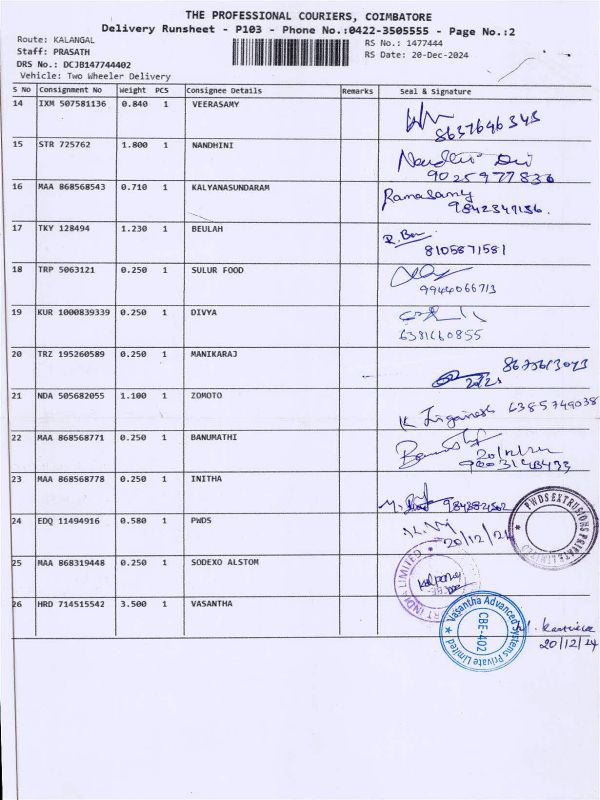 THE PROFESSIONAL COURIERS, COIMBATORE
Delivery Runsheet - P103 - Phone No.:0422-3505555 - Page No.:2
Route: KALANGAL
RS No.: 1477444
Staff: PRASATH
RS Date: 20-Dec-2024
DRS No.: DCJB147744402
Vehicle: Two Wheeler Delivery
S No Consignment No Weight PCS Consignee Details Remarks Seal & Signature
14 IXM 507581136 0.840 1 VEERASAMY
8637646343
15 STR 725762 1.800 1 NANDHINI
9025977836
16 MAA 868568543 0.710 1 KALYANASUNDARAM Ramasamy
17 TKY 128494 1.230 1 BEULAH R. Ben
8105871581
18 TRP 5063121 0.250 1 SULUR FOOD
9944066713
19 KUR 1000839339 0.250 1 DIVYA
6381660855
20 TRZ 195260589 0.250 1 MANIKARAJ
21 NDA 505682055 1.100 1 ZOMOTO
6385749038
22 MAA 868568771 0.250 1 BANUMATHI
23 MAA 868568778 0.250 1 INITHA
24 EDQ 11494916 0.580 1 PWDS
20/12/24
PWDS EXTRUSIONS PRIVATE LIMITED
25 MAA 868319448 0.250 1 SODEXO ALSTOM
26 HRD 714515542 3.500 1 VASANTHA
Vasantha Advanced Systems Private Limited
CBE-402
20/12/24